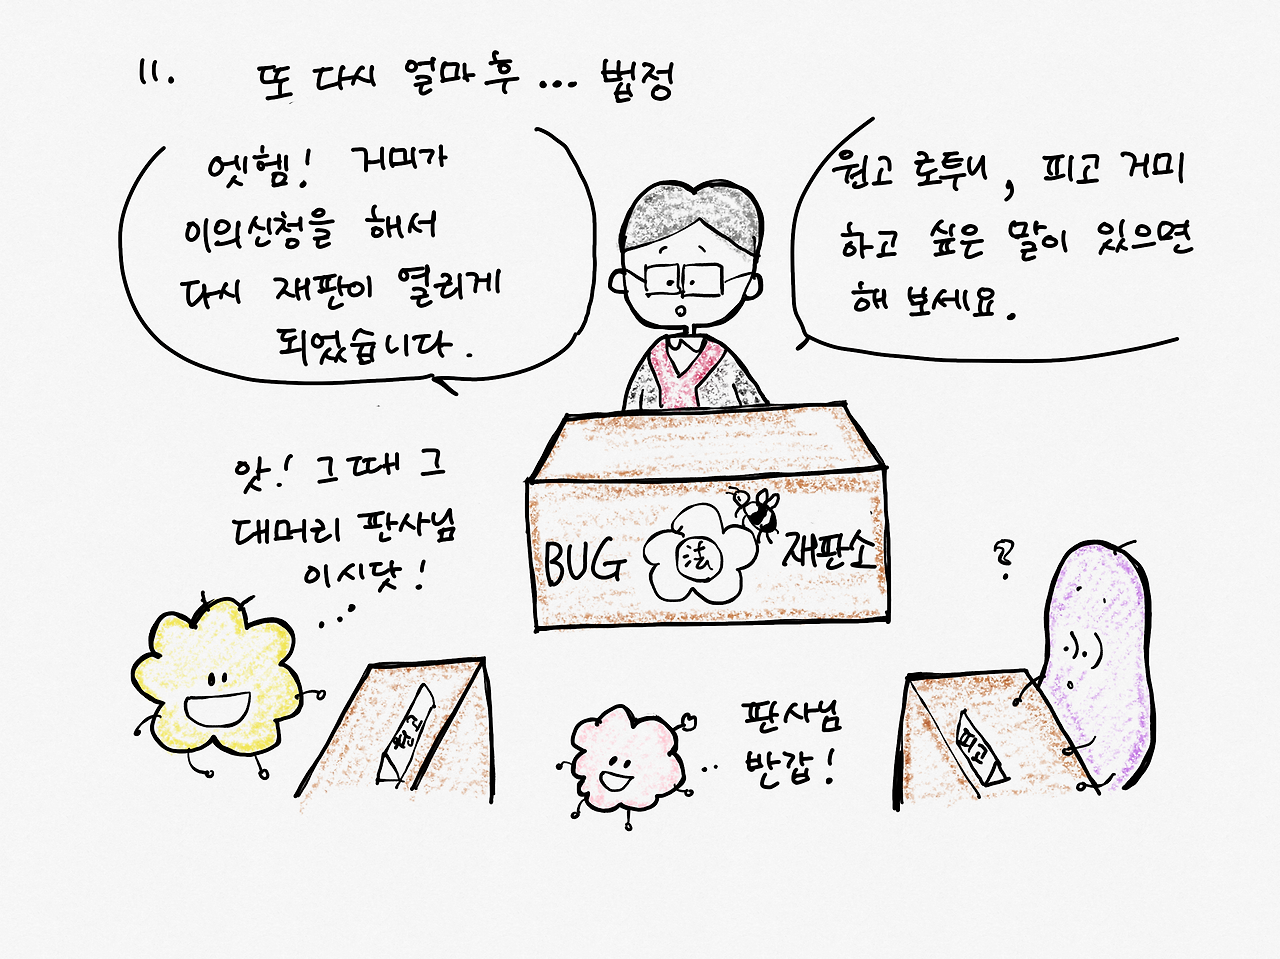 11. 또 다시 얼마 후... 법정
엣헴! 거미가
이의신청을 해서
다시 재판이 열리게
되었습니다.
원고 로투니, 피고 거미
하고 싶은 말이 있으면
해 보세요.
앗! 그때 그
대머리 판사님
이시닷!
BUG 法 재판소
?
원고
판사님
반갑!
피고